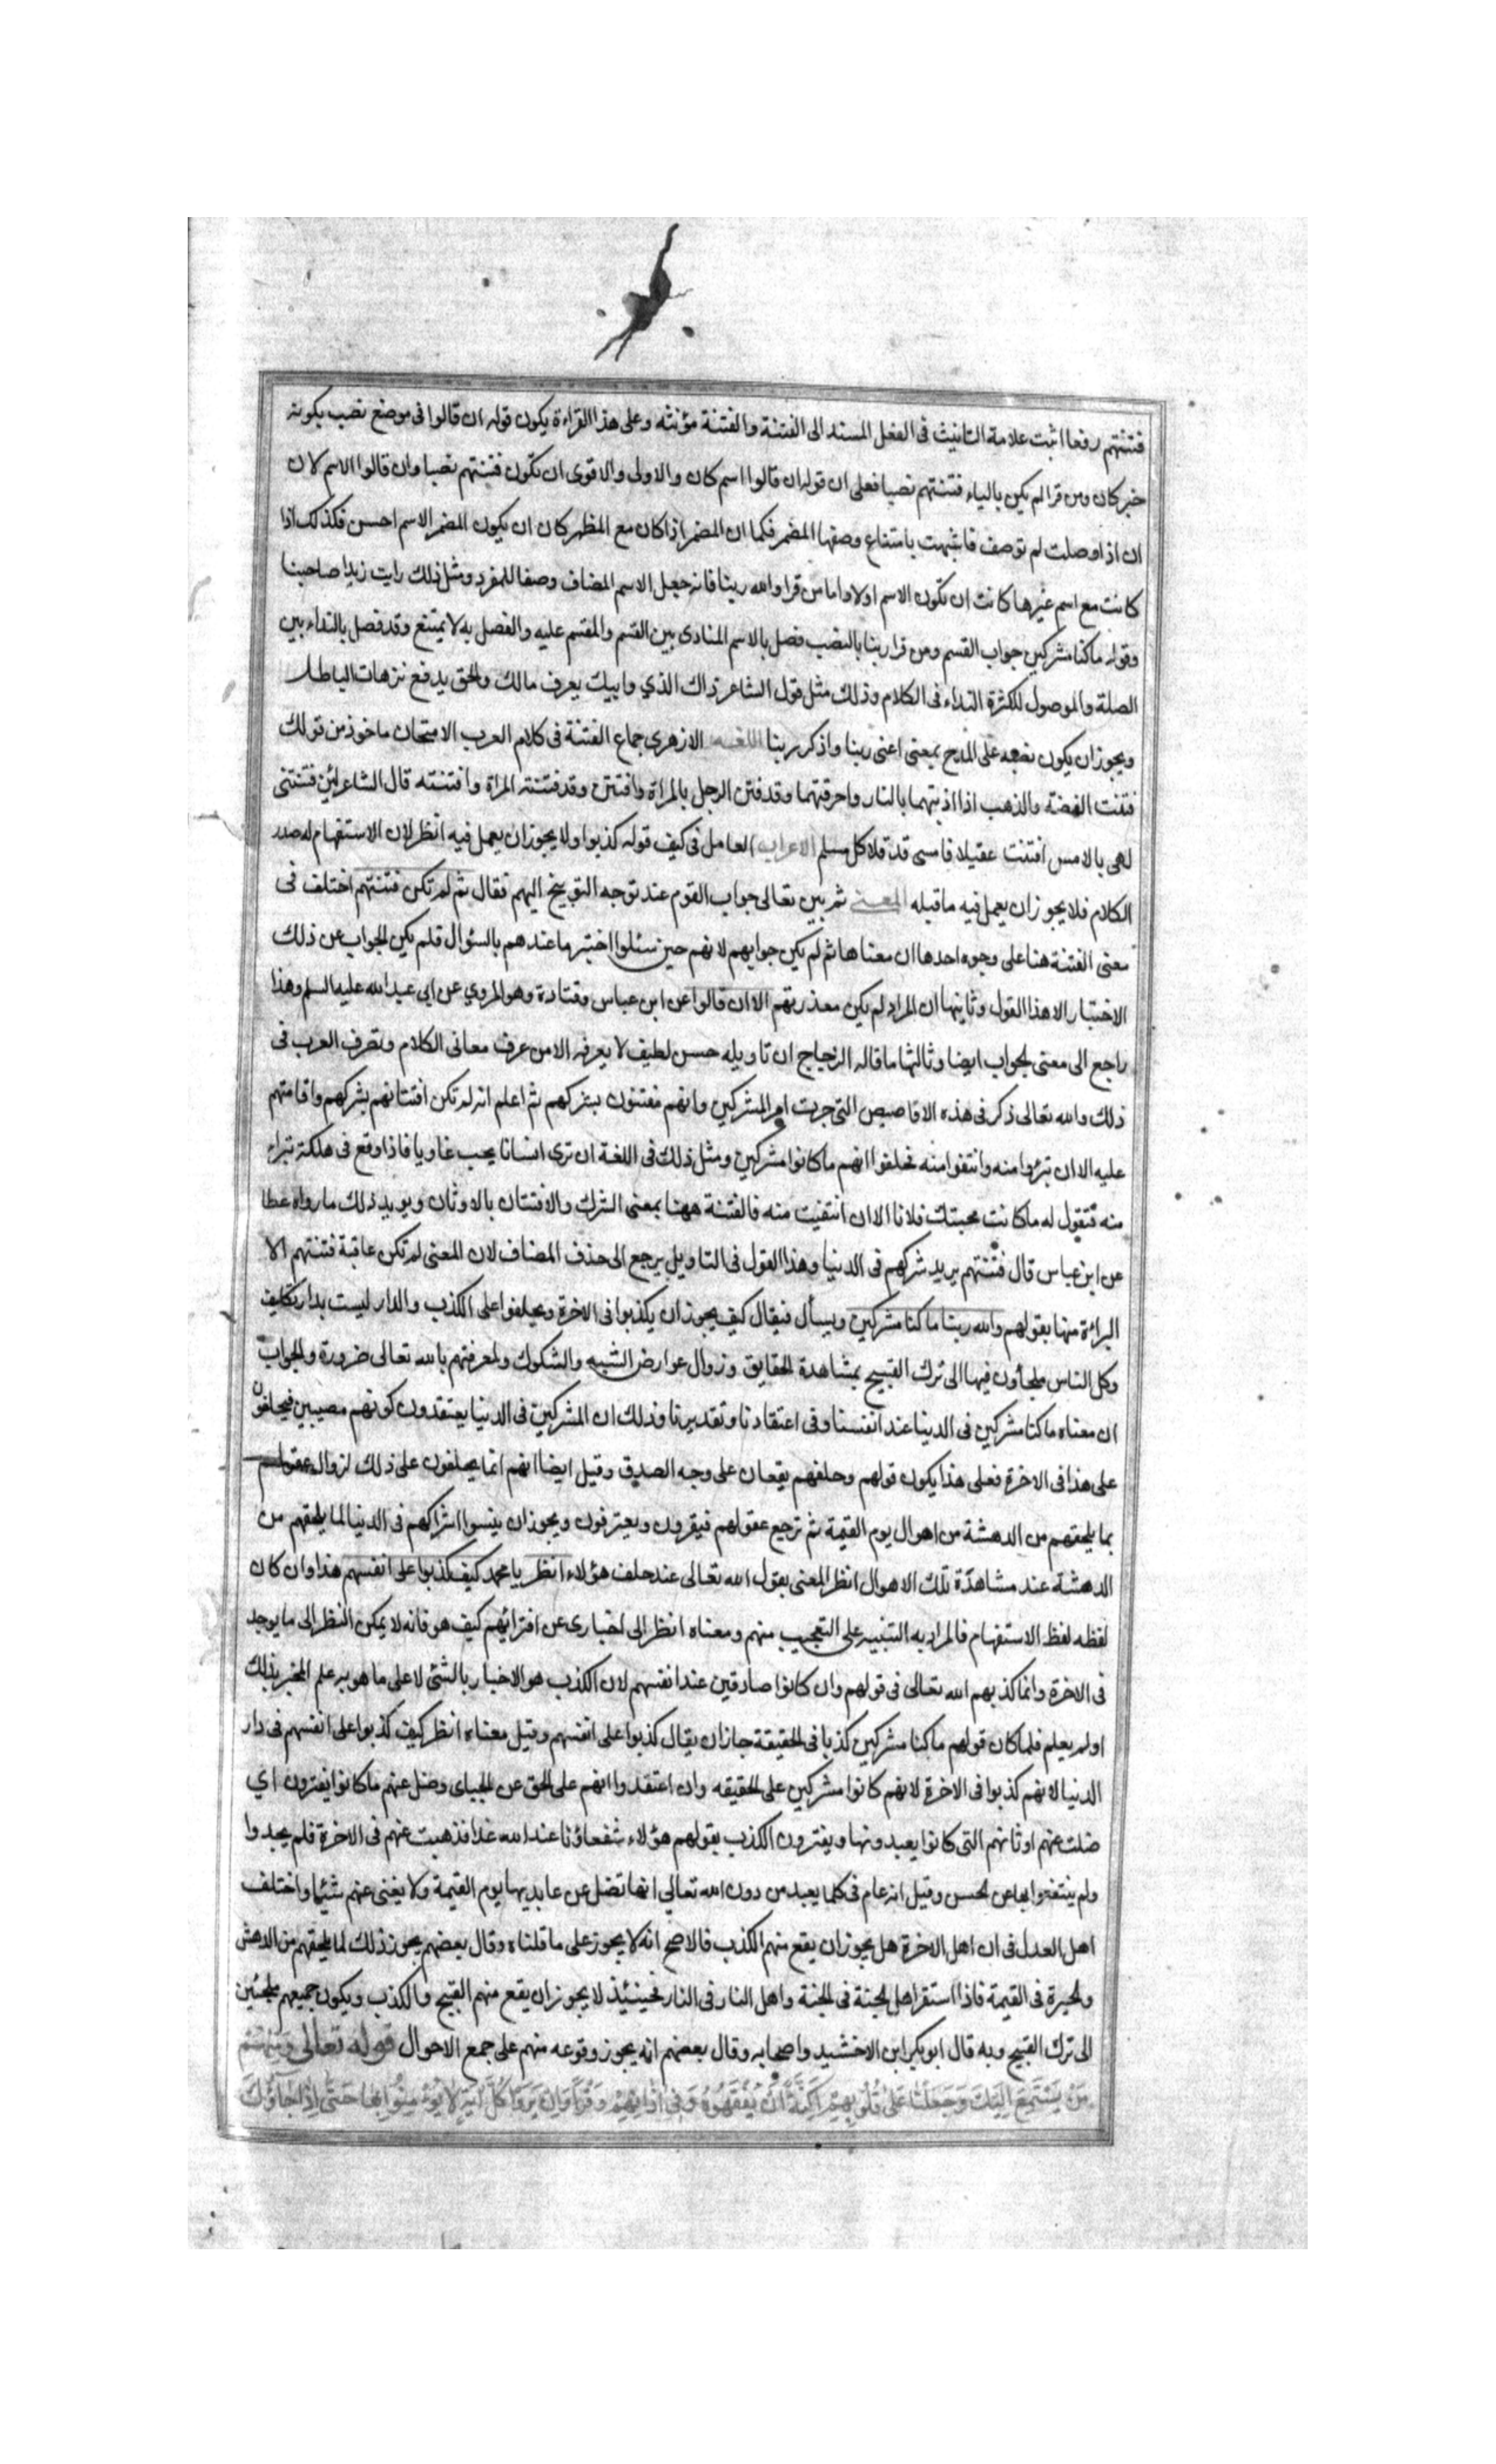 فتنتهم رفعا اثبت علامة التانيث فى الفعل المسند الى الفتنة والفتنة مؤنثه وعلى هذا القراءة يكون قوله ان قالوا فى موضع نصب بكونه
خبر كان ومن قرا لم يكن بالياء فتنتهم نصبا فعلى ان قوله ان قالوا اسم كان والاولى والاقوى ان تكون فتنتهم نصبا وان قالوا الاسم لان
ان اذا وصلت لم توصف فاشبهت بامتناع وصفها المضمر فكما ان المضمر اذا كان مع المظهر كان ان يكون المضمر الاسم احسن فكذلك اذا
كانت مع اسم غيرها كانت ان تكون الاسم اولا واما من قرا والله ربنا فانه جعل الاسم المضاف وصفا للمفرد ومثل ذلك رايت زيدا صاحبنا
وقوله ما كنا مشركين جواب القسم ومن قرا ربنا بالنصب فصل بالاسم المنادى بين القسم والمقسم عليه والفصل به لا يمتنع وقد فصل بالنداء بين
الصلة والموصول لكثرة النداء فى الكلام وذلك مثل قول الشاعر ذاك الذي وابيك يعرف مالك والحق يدفع نزهات الباطل
ويجوز ان يكون نصبه على المدح بمعنى اعنى ربنا واذكر ربنا اللغه الازهرى جماع الفتنة فى كلام العرب الامتحان ماخوذ من قولك
فتنت الفضة والذهب اذا اذبتهما بالنار واحرقتهما وقد فتن الرجل بالمراة وافتتن وقد فتنته المراة وافتنته قال الشاعر لئن فتنتنى
لهى بالامس افتنت عقيلا فامسى قد قلا كل مسلم الاعراب العامل فى كيف قوله كذبوا ولا يجوز ان يعمل فيه انظر لان الاستفهام له صدر
الكلام فلا يجوز ان يعمل فيه ما قبله المعنى ثم بين تعالى جواب القوم عند توجه التوبيخ اليهم فقال ثم لم تكن فتنتهم اختلف فى
معنى الفتنة هنا على وجوه احدها ان معناها ثم لم يكن جوابهم لانهم حين سئلوا اختبر ما عندهم بالسؤال فلم يكن الجواب عن ذلك
الاختبار الا هذا القول وثانيها ان المراد لم يكن معذرتهم الا ان قالوا عن ابن عباس وقتادة وهو المروي عن ابى عبد الله عليه السلم وهذا
راجع الى معنى الجواب ايضا وثالثها ما قاله الزجاج ان تاويله حسن لطيف لا يعرفه الا من عرف معانى الكلام وتصرف العرب فى
ذلك والله تعالى ذكر فى هذه الاقاصيص التى جرت امر المشركين وانهم مفتنون بشركهم ثم اعلم انه لم تكن افتتانهم بشركهم واقامتهم
عليه الا ان تبرؤا منه وانتفوا منه فحلفوا انهم ما كانوا مشركين ومثل ذلك فى اللغة ان ترى انسانا يحب غاويا فاذا وقع فى هلكة تبراء
منه فتقول له ما كانت محبتك فلانا الا ان انتفيت منه فالفتنة ههنا بمعنى الشرك والافتتان بالاوثان ويويد ذلك ما رواه عطا
عن ابن عباس قال فتنتهم يريد شركهم فى الدنيا وهذا القول فى التاويل يرجع الى حذف المضاف لان المعنى لم تكن عاقبة فتنتهم الا
البراءة منها بقولهم والله ربنا ما كنا مشركين ويسأل فيقال كيف يجوز ان يكذبوا فى الاخرة ويحلفوا على الكذب والدار ليست بدار تكليف
وكل الناس ملجأون فيها الى ترك القبيح بمشاهدة الحقايق وزوال عوارض الشبه والشكوك ولمعرفتهم بالله تعالى ضرورة والجواب
ان معناه ما كنا مشركين فى الدنيا عند انفسنا وفى اعتقادنا وتقديرنا وذلك ان المشركين فى الدنيا يعتقدون كونهم مصيبين فيحلفون
على هذا فى الاخرة فعلى هذا يكون قولهم وحلفهم يقعان على وجه الصدق وقيل ايضا انهم انما يحلفون على ذلك لزوال عقولهم
بما يلحقهم من الدهشة من اهوال يوم القيمة ثم ترجع عقولهم فيقرون ويعترفون ويجوز ان ينسوا اشراكهم فى الدنيا لما يلحقهم من
الدهشة عند مشاهدة تلك الاهوال انظر المعنى يقول الله تعالى عند حلف هؤلاء انظر يا محمد كيف كذبوا على انفسهم هذا وان كان
لفظه لفظ الاستفهام فالمراد به التنبيه على التعجيب منهم ومعناه انظر الى اخبارى عن افترائهم كيف هو فانه لا يمكن النظر الى ما يوجد
فى الاخرة وانما كذبهم الله تعالى فى قولهم وان كانوا صادقين عند انفسهم لان الكذب هو الاخبار بالشئ لا على ما هو به علم المخبر بذلك
او لم يعلم فلما كان قولهم ما كنا مشركين كذبا فى الحقيقة جاز ان يقال كذبوا على انفسهم وقيل معناه انظر كيف كذبوا على انفسهم فى دار
الدنيا لا انهم كذبوا فى الاخرة لانهم كانوا مشركين على الحقيقه وان اعتقدوا انهم على الحق عن الجباى وضل عنهم ما كانوا يفترون اي
ضلت عنهم اوثانهم التى كانوا يعبدونها ويفترون الكذب بقولهم هؤلاء شفعاؤنا عند الله غدا فذهبت عنهم فى الاخرة فلم يجدوا
ولم ينتفعوا بها عن الحسن وقيل انه عام فى كلما يعبد من دون الله تعالى انها تضل عن عابديها يوم القيمة ولا يغنى عنهم شيئا واختلف
اهل العدل فى ان اهل الاخرة هل يجوز ان يقع منهم الكذب فالاصح انه لا يجوز على ما قلناه وقال بعضهم يجوز ذلك لما يلحقهم من الدهش
والحيرة فى القيمة فاذا استقر اهل الجنة فى الجنة واهل النار فى النار فحينئذ لا يجوز ان يقع منهم القبيح والكذب ويكون جميعهم ملجئين
الى ترك القبيح وبه قال ابو بكر ابن الاخشيد واصحابه وقال بعضهم انه يجوز وقوعه منهم على جمع الاحوال قوله تعالى ومنهم
من يستمع اليك وجعلنا على قلوبهم اكنة ان يفقهوه وفى اذانهم وقرا وان يروا كل اية لا يؤمنوا بها حتى اذا جاؤك